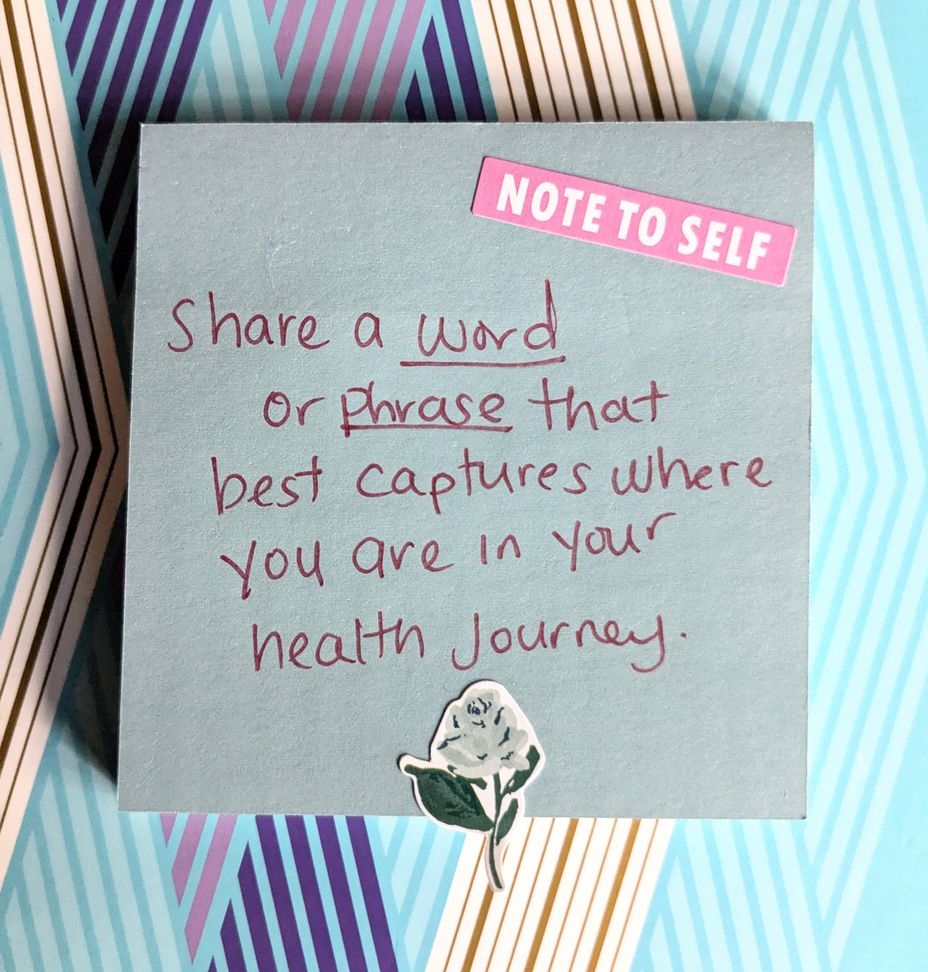 NOTE TO SELF
Share a word
or phrase that
best captures where
you are in your
health journey.